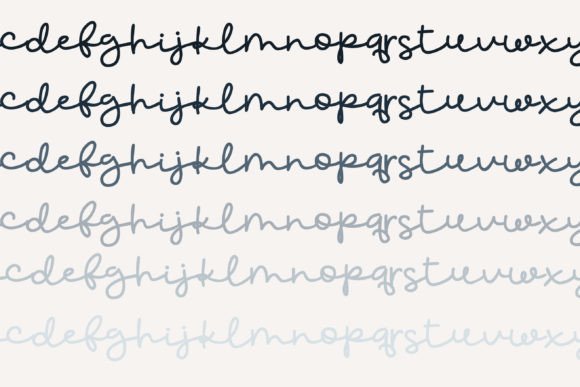 cdefghijklmnopqrstuvwxy
cdefghijklmnopqrstuvwxy
cdefghijklmnopqrstuvwxy
cdefghijklmnopqrstuvwxy
cdefghijklmnopqrstuvwxy
cdefghijklmnopqrstuvwxy